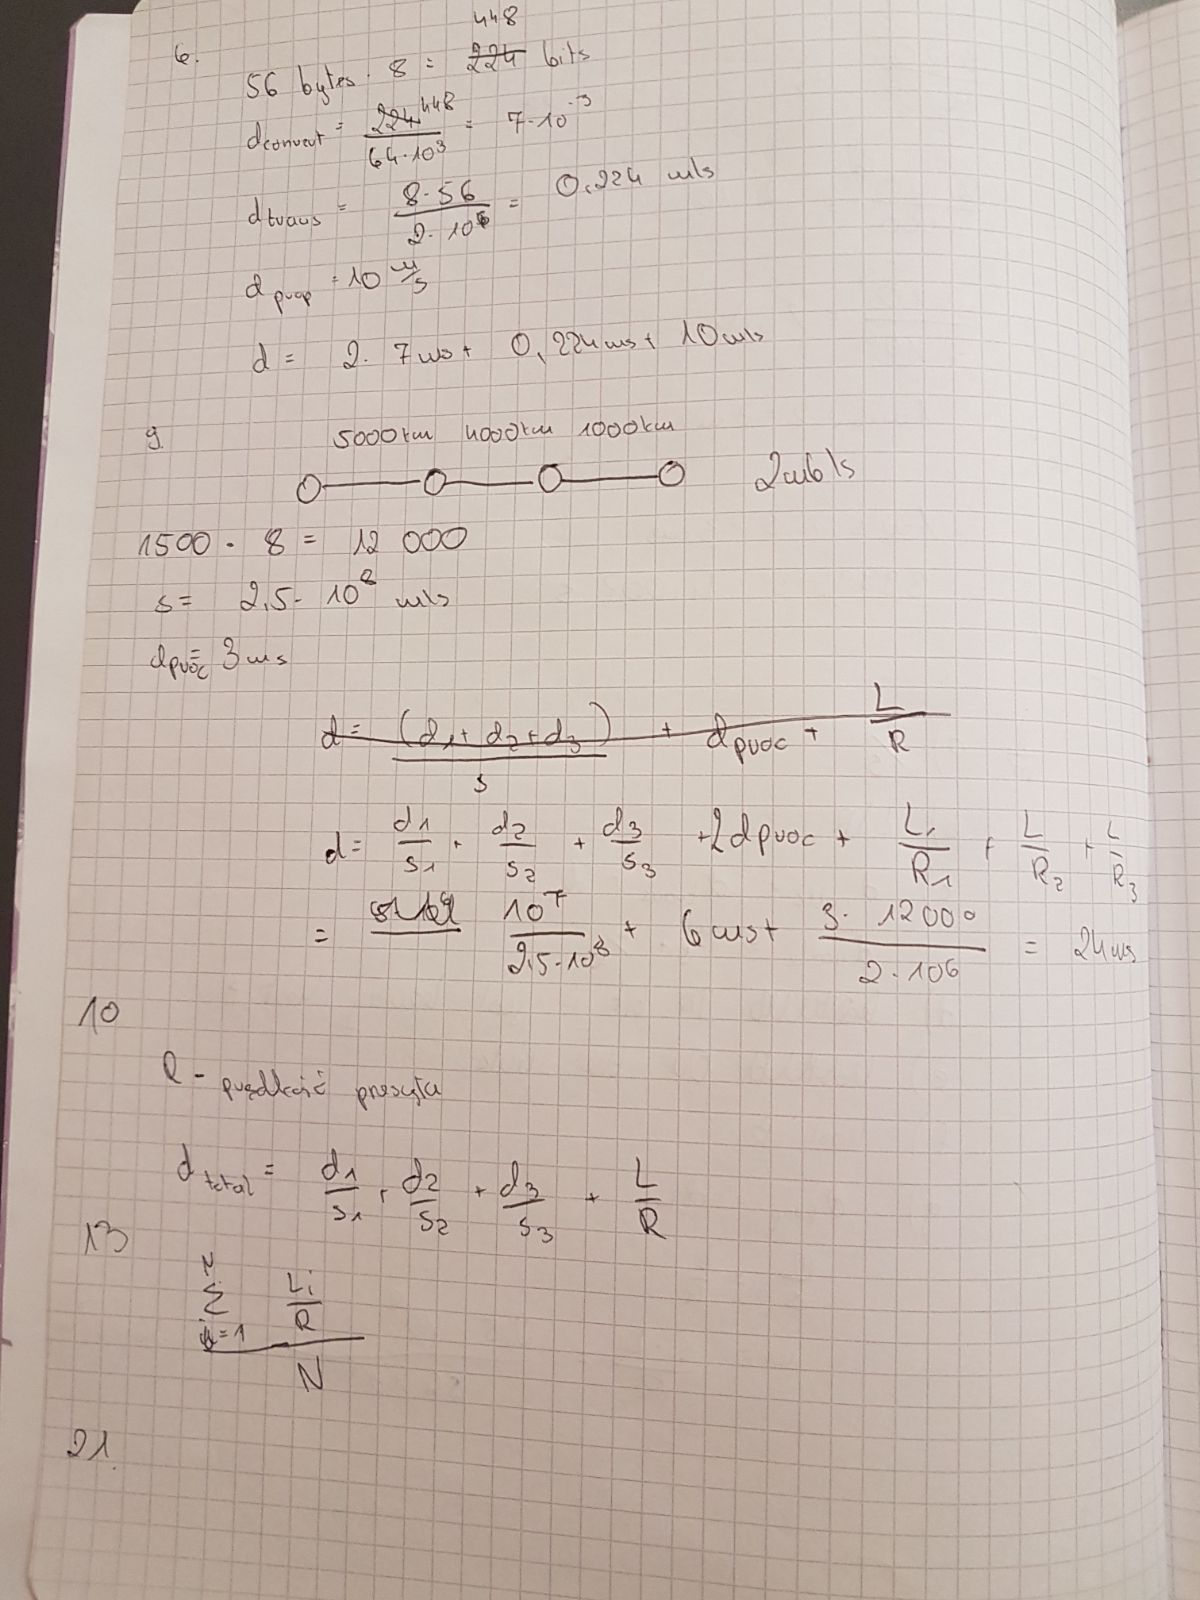 448
6.
56 bytes · 8 = 224 bits
dconvert = 224 448 / 64·10³ = 7·10⁻³
dtrans = 8·56 / 2·10⁶ = 0,224 m/s
dprop = 10 m/s
d = 2· 7ms + 0,224ms + 10m/s
9.
5000km 4000km 1000km
2mb/s
1500 · 8 = 12 000
s = 2,5· 10⁸ m/s
dproc = 3ms
d = (d1 + d2 + d3) / s + dproc + L / R
d = d1/s1 + d2/s2 + d3/s3 + 2dproc + L1/R1 + L/R2 + L/R3
= 10⁷ / 2,5·10⁸ + 6ms + 3· 12000 / 2·10⁶ = 24ms
10
R - prędkość przesyłu
dtotal = d1/s1 + d2/s2 + d3/s3 + L/R
13
N
Σ Li / R
=1
N
21.